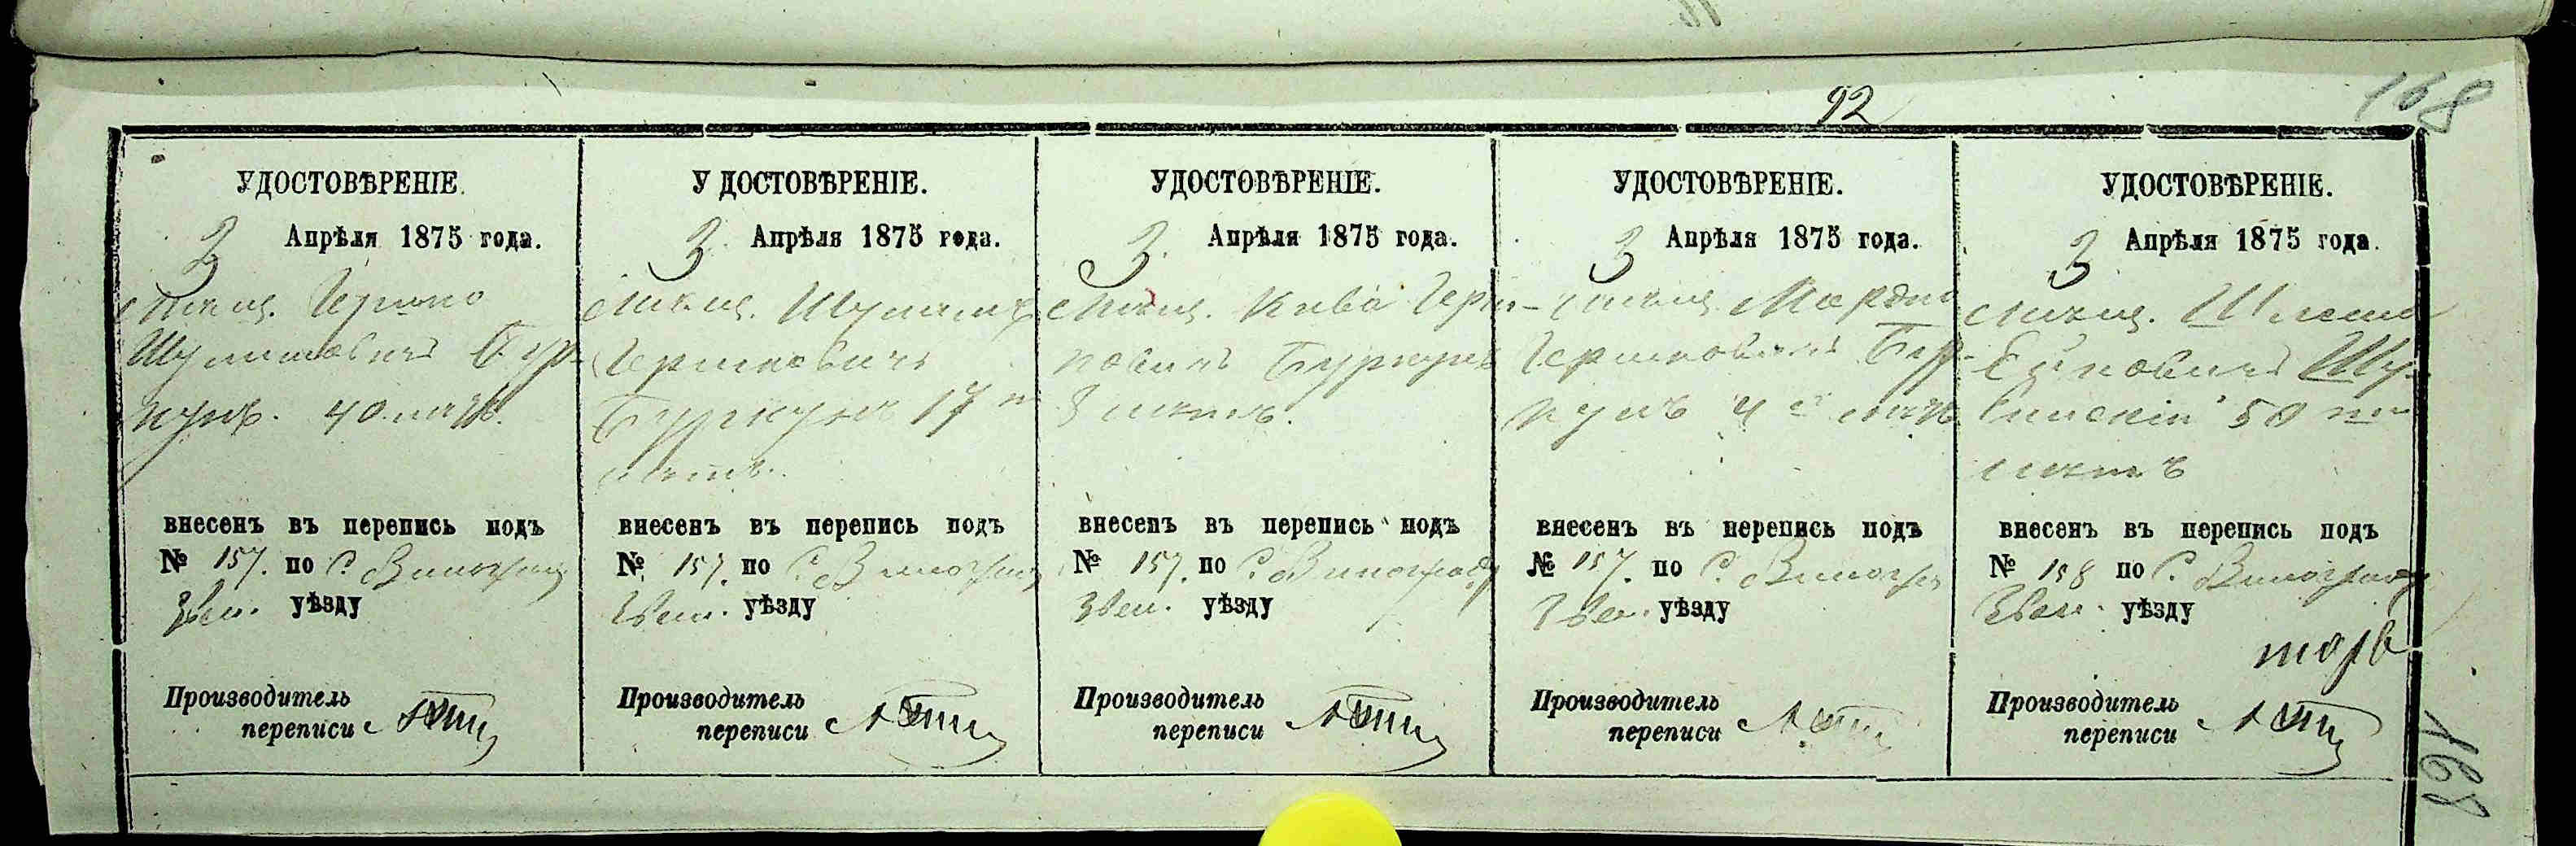 92
158
УДОСТОВѢРЕНІЕ.
3 Апрѣля 1875 года.
Гершко
Шулимовичъ Бур-
кунъ. 40 лѣтъ.
внесенъ въ перепись подъ
№ 157. по С. Виноград
Звен. уѣзду
Производитель
переписи
УДОСТОВѢРЕНІЕ.
3 Апрѣля 1875 года.
Шулимъ
Гершковичъ
Буркунъ 17
лѣтъ.
внесенъ въ перепись подъ
№ 157. по С. Виноград
Звен. уѣзду
Производитель
переписи
УДОСТОВѢРЕНІЕ.
3 Апрѣля 1875 года.
Кива Герш-
ковичъ Буркунъ
лѣтъ.
внесенъ въ перепись подъ
№ 157. по С. Виноград
Звен. уѣзду
Производитель
переписи
УДОСТОВѢРЕНІЕ.
3 Апрѣля 1875 года.
Мордко
Гершковичъ Бур-
кунъ 4 лѣтъ
внесенъ въ перепись подъ
№ 157. по С. Виногра
Звен. уѣзду
Производитель
переписи
УДОСТОВѢРЕНІЕ.
3 Апрѣля 1875 года.
50
лѣтъ
внесенъ въ перепись подъ
№ 158 по С. Виноград
Звен. уѣзду
Производитель
переписи
168